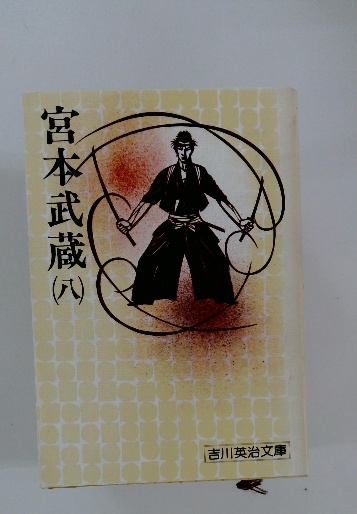 宮本武蔵
(八)
吉川英治文庫